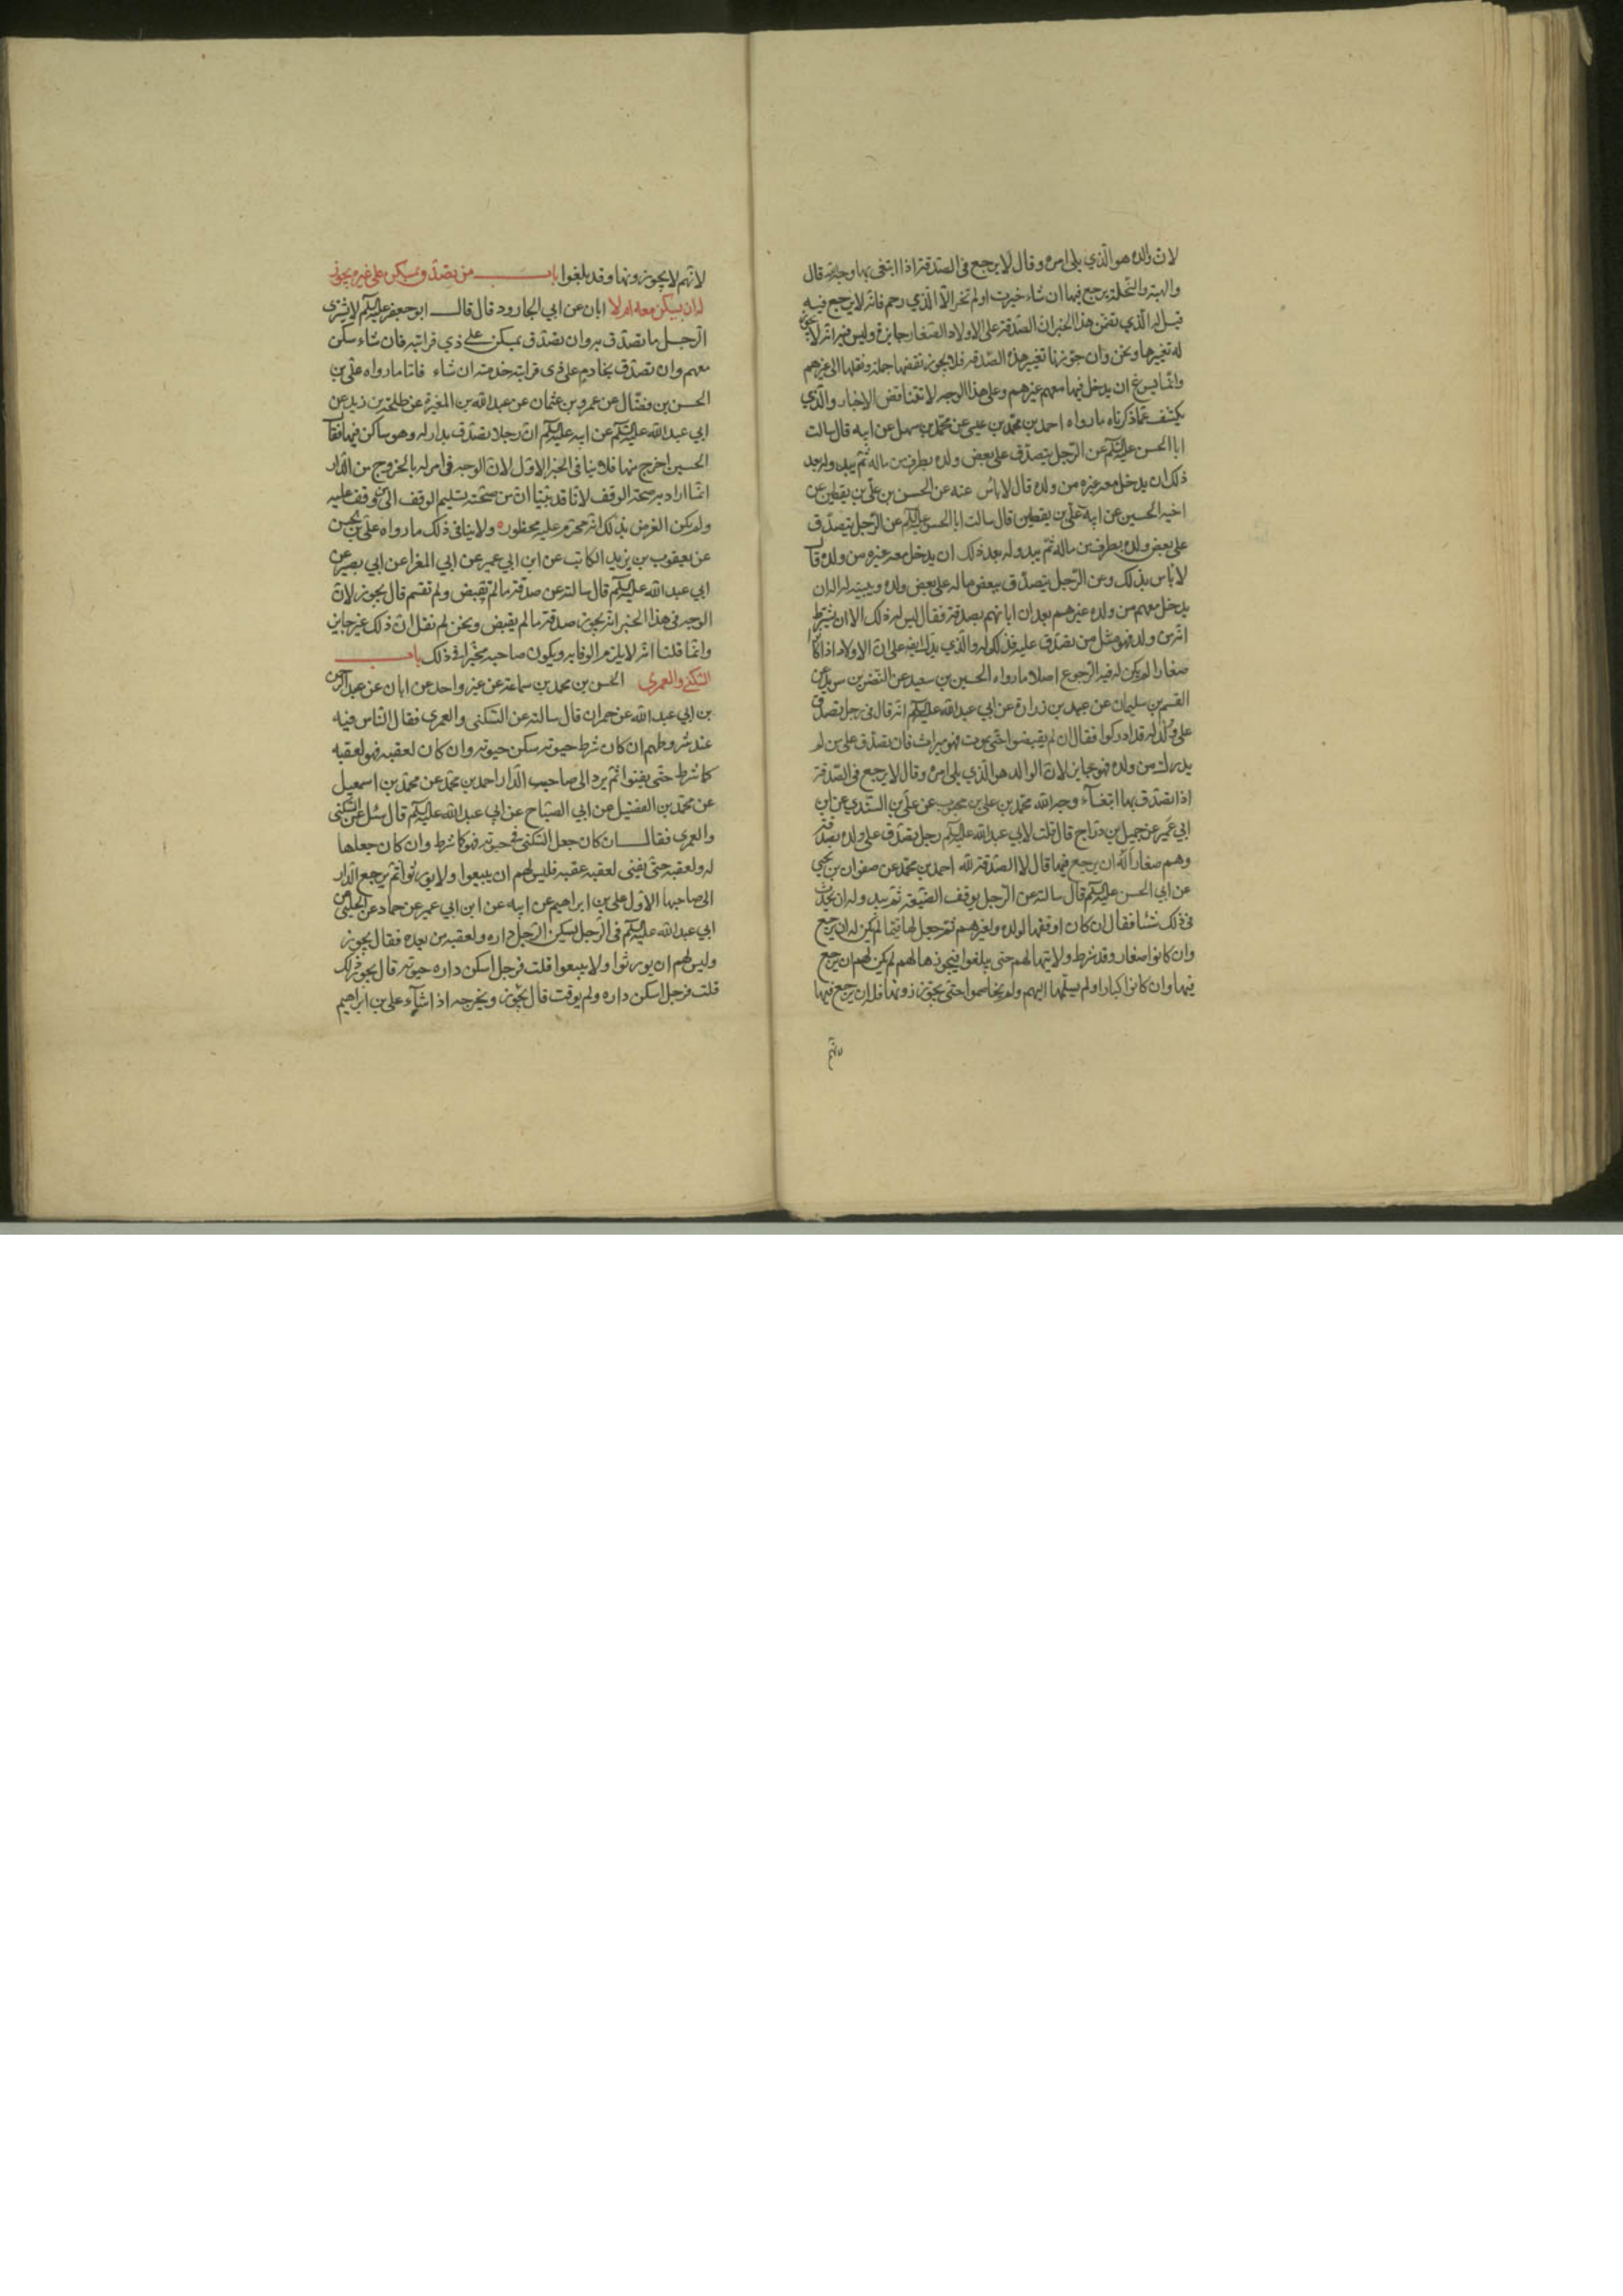 لان والده هو الذي يلي امره وقال لا يرجع في الصدقة اذا ابتغى بها وجه الله قال
والهبة والنحلة يرجع فيها ان شاء خيرت او لم تخر الا الذي رحم فانه لا يرجع فيه
قيل له الذي تضمن هذا الخبر ان الصدقة على الاولاد الصغار جايزة وليس فيه انه لا يجوز
له تغيرها ونحن وان جوزنا تغيير هذه الصدقه فلا يجوز نقضها جملة ونقلها الى غيرهم
وانما يسوغ ان يدخل فيها معهم غيرهم وعلى هذا الوجه لا تتناقض الاخبار والذي
يكشف عما ذكرناه ما رواه احمد بن محمد بن عيسى عن محمد بن سهل عن ابيه قال سالت
ابا الحسن عليه السلام عن الرجل يتصدق على بعض ولده بطرف من ماله ثم يبدو له بعد
ذلك ان يدخل معه غيره من ولده قال لا باس عنه عن الحسن بن علي بن يقطين عن
اخيه الحسين عن ابيه علي بن يقطين قال سالت ابا الحسن عليه السلام عن الرجل يتصدق
على بعض ولده بطرف من ماله ثم يبدو له بعد ذلك ان يدخل معه غيره من ولده قال
لا باس بذلك وعن الرجل يتصدق ببعض ماله على بعض ولده ويبينه له اله ان
يدخل معهم من ولده غيرهم بعد ان ابانهم بصدقة فقال ليس له ذلك الا ان يشترط
انه من ولده فهو مثل من تصدق عليه فذلك له والذي يدل ايضه على ان الاولاد اذا كانوا
صغارا لم يكن له فيه الرجوع اصلا ما رواه الحسين بن سعيد عن النضر بن سويد عن
القسم بن سليمان عن عبيد بن زرارة عن ابي عبد الله عليه السلام انه قال في رجل تصدق
على ولد له قد ادركوا فقال ان لم يقبضوا حتى يموت فهو ميراث فان تصدق على من لم
يدرك من ولده فهو جايز لان الوالد هو الذي يلي امره وقال لا يرجع في الصدقة
اذا تصدق بها ابتغاء وجه الله محمد بن علي بن محبوب عن علي بن السندي عن ابن
ابي عمير عن جميل بن دراج قال قلت لابي عبد الله عليه السلام رجل تصدق على ولده بصدقة
وهم صغار اله ان يرجع فيها قال لا الصدقة لله احمد بن محمد عن صفوان بن يحيى
عن ابي الحسن عليه السلام قال سالته عن الرجل يوقف الضيعة ثم يبدو له ان يحدث
في ذلك شئا فقال ان كان اوقفها لولده ولغيرهم ثم جعل لها قيما لم يكن له ان يرجع
وان كانوا صغار وقد شرط ولايتها لهم حتى يبلغوا فيحوزها لهم لم يكن لهم ان يرجع
فيها وان كانوا كبارا ولم يسلمها اليهم ولم يخاصموا حتى يحوزونها فله ان يرجع فيها
لانهم
لانهم لا يحوزونها وقد بلغوا باب من تصدق بمسكن على غيره يجوز
له ان يسكن معه ام لا ابان عن ابي الجارود قال قال ابو جعفر عليه السلام لا يشترى
الرجل ما تصدق به وان تصدق بمسكن على ذي قرابته فان شاء سكن
معهم وان تصدق بخادم على ذى قرابته خدمته ان شاء فاما ما رواه علي بن
الحسن بن فضال عن عمرو بن عثمان عن عبد الله بن المغيرة عن طلحة بن زيد عن
ابي عبد الله عليه السلام عن ابيه عليه السلام ان رجلا تصدق بدار له وهو ساكن فيها فقال
الحسين اخرج منها فلا ينافى الخبر الاول لان الوجه في امر له بالخروج من الدار
انما اراد به صحة الوقف لانا قد بينا ان من صحته تسليم الوقف الى من وقف عليه
ولم يكن الغرض بذلك انه محرم عليه محظور ولا ينافى ذلك ما رواه علي بن الحسن
عن يعقوب بن يزيد الكاتب عن ابن ابي عمير عن ابي المغرا عن ابي بصير عن
ابي عبد الله عليه السلام قال سالته عن صدقة ما لم تقبض ولم تقسم قال يجوز لان
الوجه في هذا الخبر انه يجوز صدقة ما لم يقبض ونحن لم نقل ان ذلك غير جايز
وانما قلنا انه لا يلزم الوفا به ويكون صاحبه مخيرا في ذلك باب
السكنى والعمرى الحسن بن محمد بن سماعة عن غير واحد عن ابان عن عبد الرحمن
بن ابي عبد الله عن حمران قال سالته عن السكنى والعمرى فقال الناس فيه
عند شروطهم ان كان شرط حيوته سكن حيوته وان كان لعقبه فهو لعقبه
كما شرط حتى يفنوا ثم يرد الى صاحب الدار احمد بن محمد عن محمد بن اسمعيل
عن محمد بن الفضيل عن ابي الصباح عن ابي عبد الله عليه السلام قال سئل عن السكنى
والعمرى فقال ان كان جعل السكنى في حيوته فهو كما شرط وان كان جعلها
له ولعقبه حتى يفنى لعقبه عقبه فليس لهم ان يبيعوا ولا يورثوا ثم يرجع الدار
الى صاحبها الاول علي بن ابراهيم عن ابيه عن ابن ابي عمير عن حماد عن الحلبي عن
ابي عبد الله عليه السلام في الرجل يسكن الرجل داره ولعقبه من بعده فقال يجوز
وليس لهم ان يورثوا ولا يبيعوا قلت فرجل اسكن داره حيوته قال يجوز ذلك
قلت فرجل اسكن داره ولم يوقت قال يجوز ويخرجه اذا شاء علي بن ابراهيم